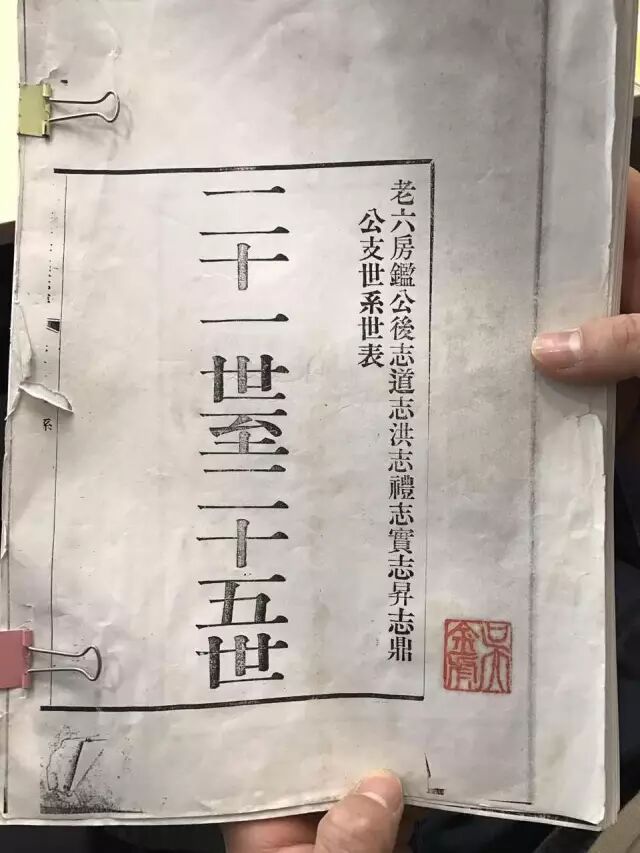 老六房鑑公後志道志洪志禮志實志昇志鼎
公支世系世表
二十一世至二十五世
系